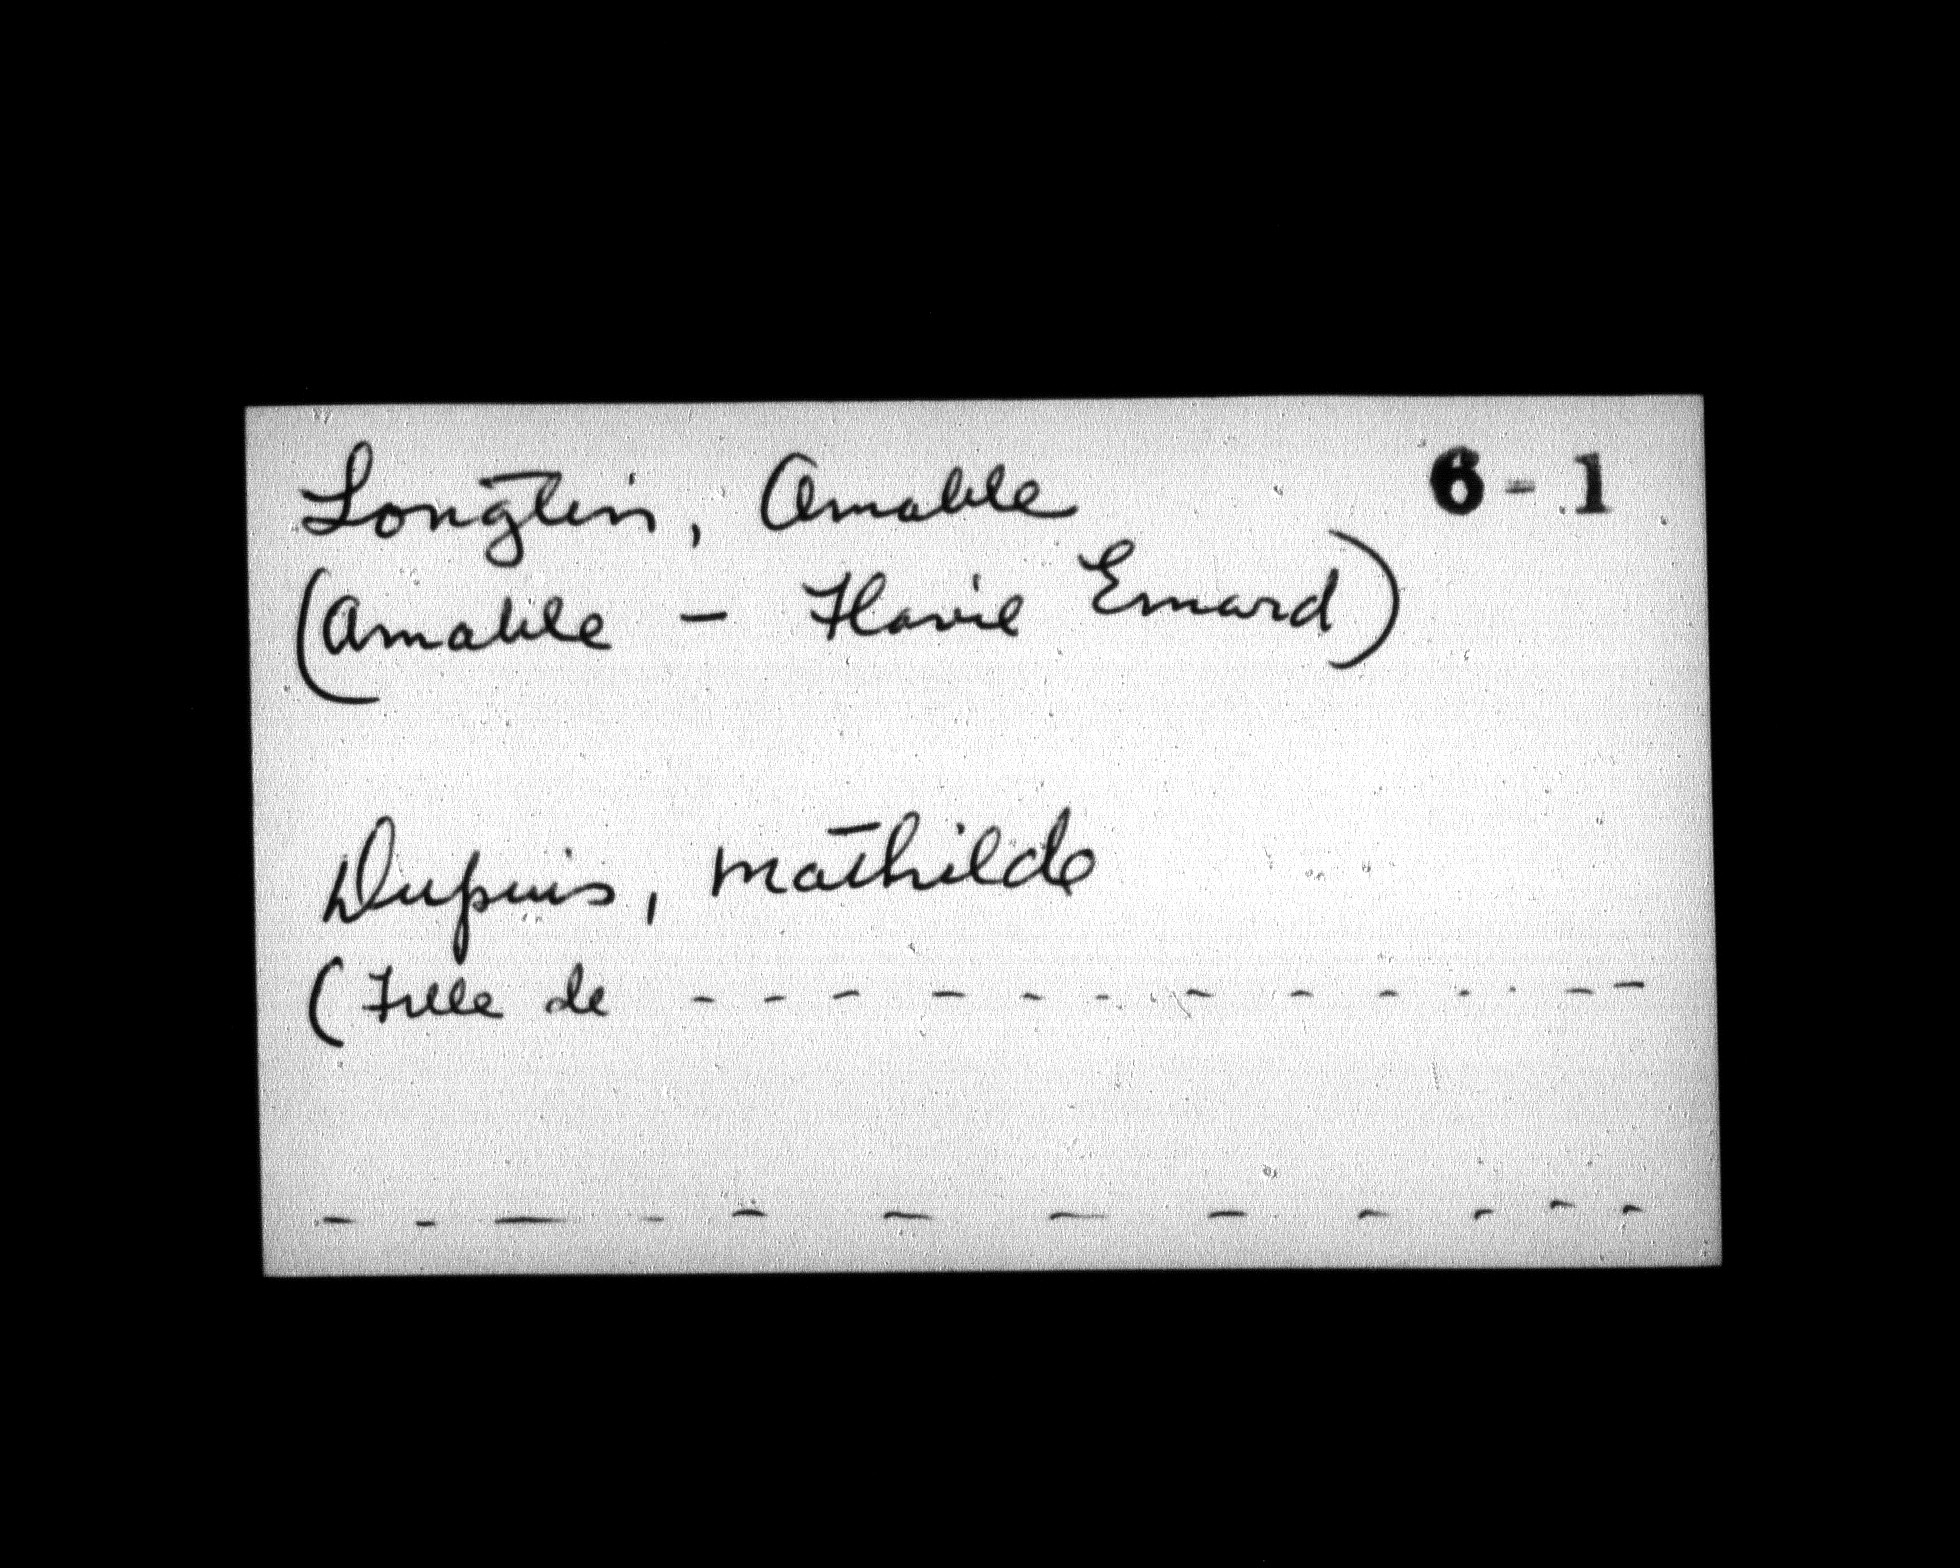 Longtin, Amable 6-1
(Amable - Flavie Emard)
Dupuis, Mathilde
(Fille de - - - - - - - - - - - - -
- - - - - - - - - - - -